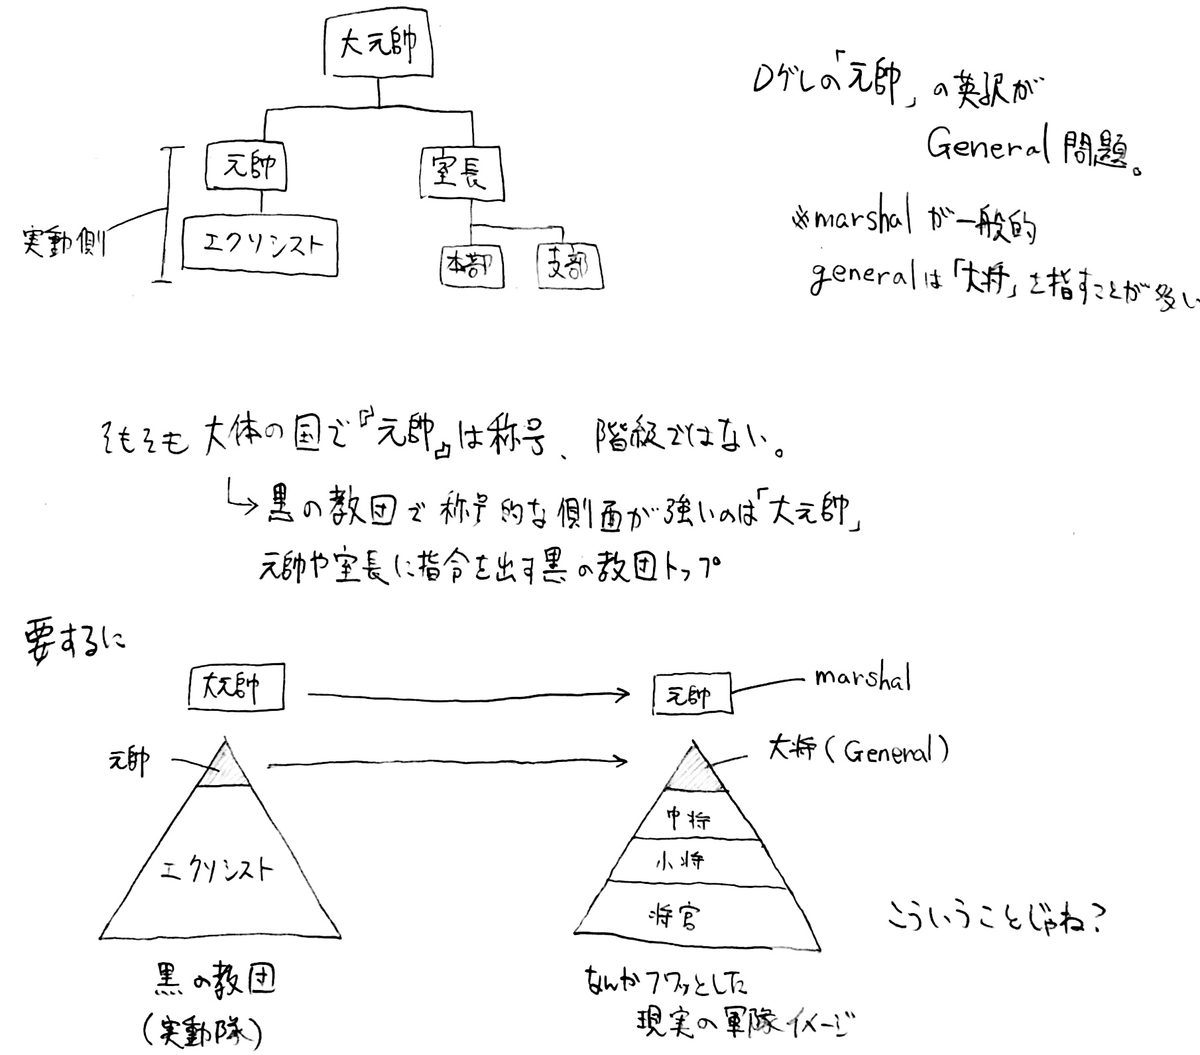 大元帥
元帥
室長
エクソシスト
本部
支部
実動側
Dグレの「元帥」の英訳が
General問題。
※marshalが一般的
generalは「大将」を指すことが多い
そもそも大体の国で『元帥』は称号、階級ではない。
↳黒の教団で称号的な側面が強いのは「大元帥」
元帥や室長に指令を出す黒の教団トップ
要するに
大元帥
元帥
marshal
元帥
大将(General)
中将
小将
エクソシスト
将官
こういうことじゃね?
黒の教団
(実動隊)
なんかフワッとした
現実の軍隊イメージ